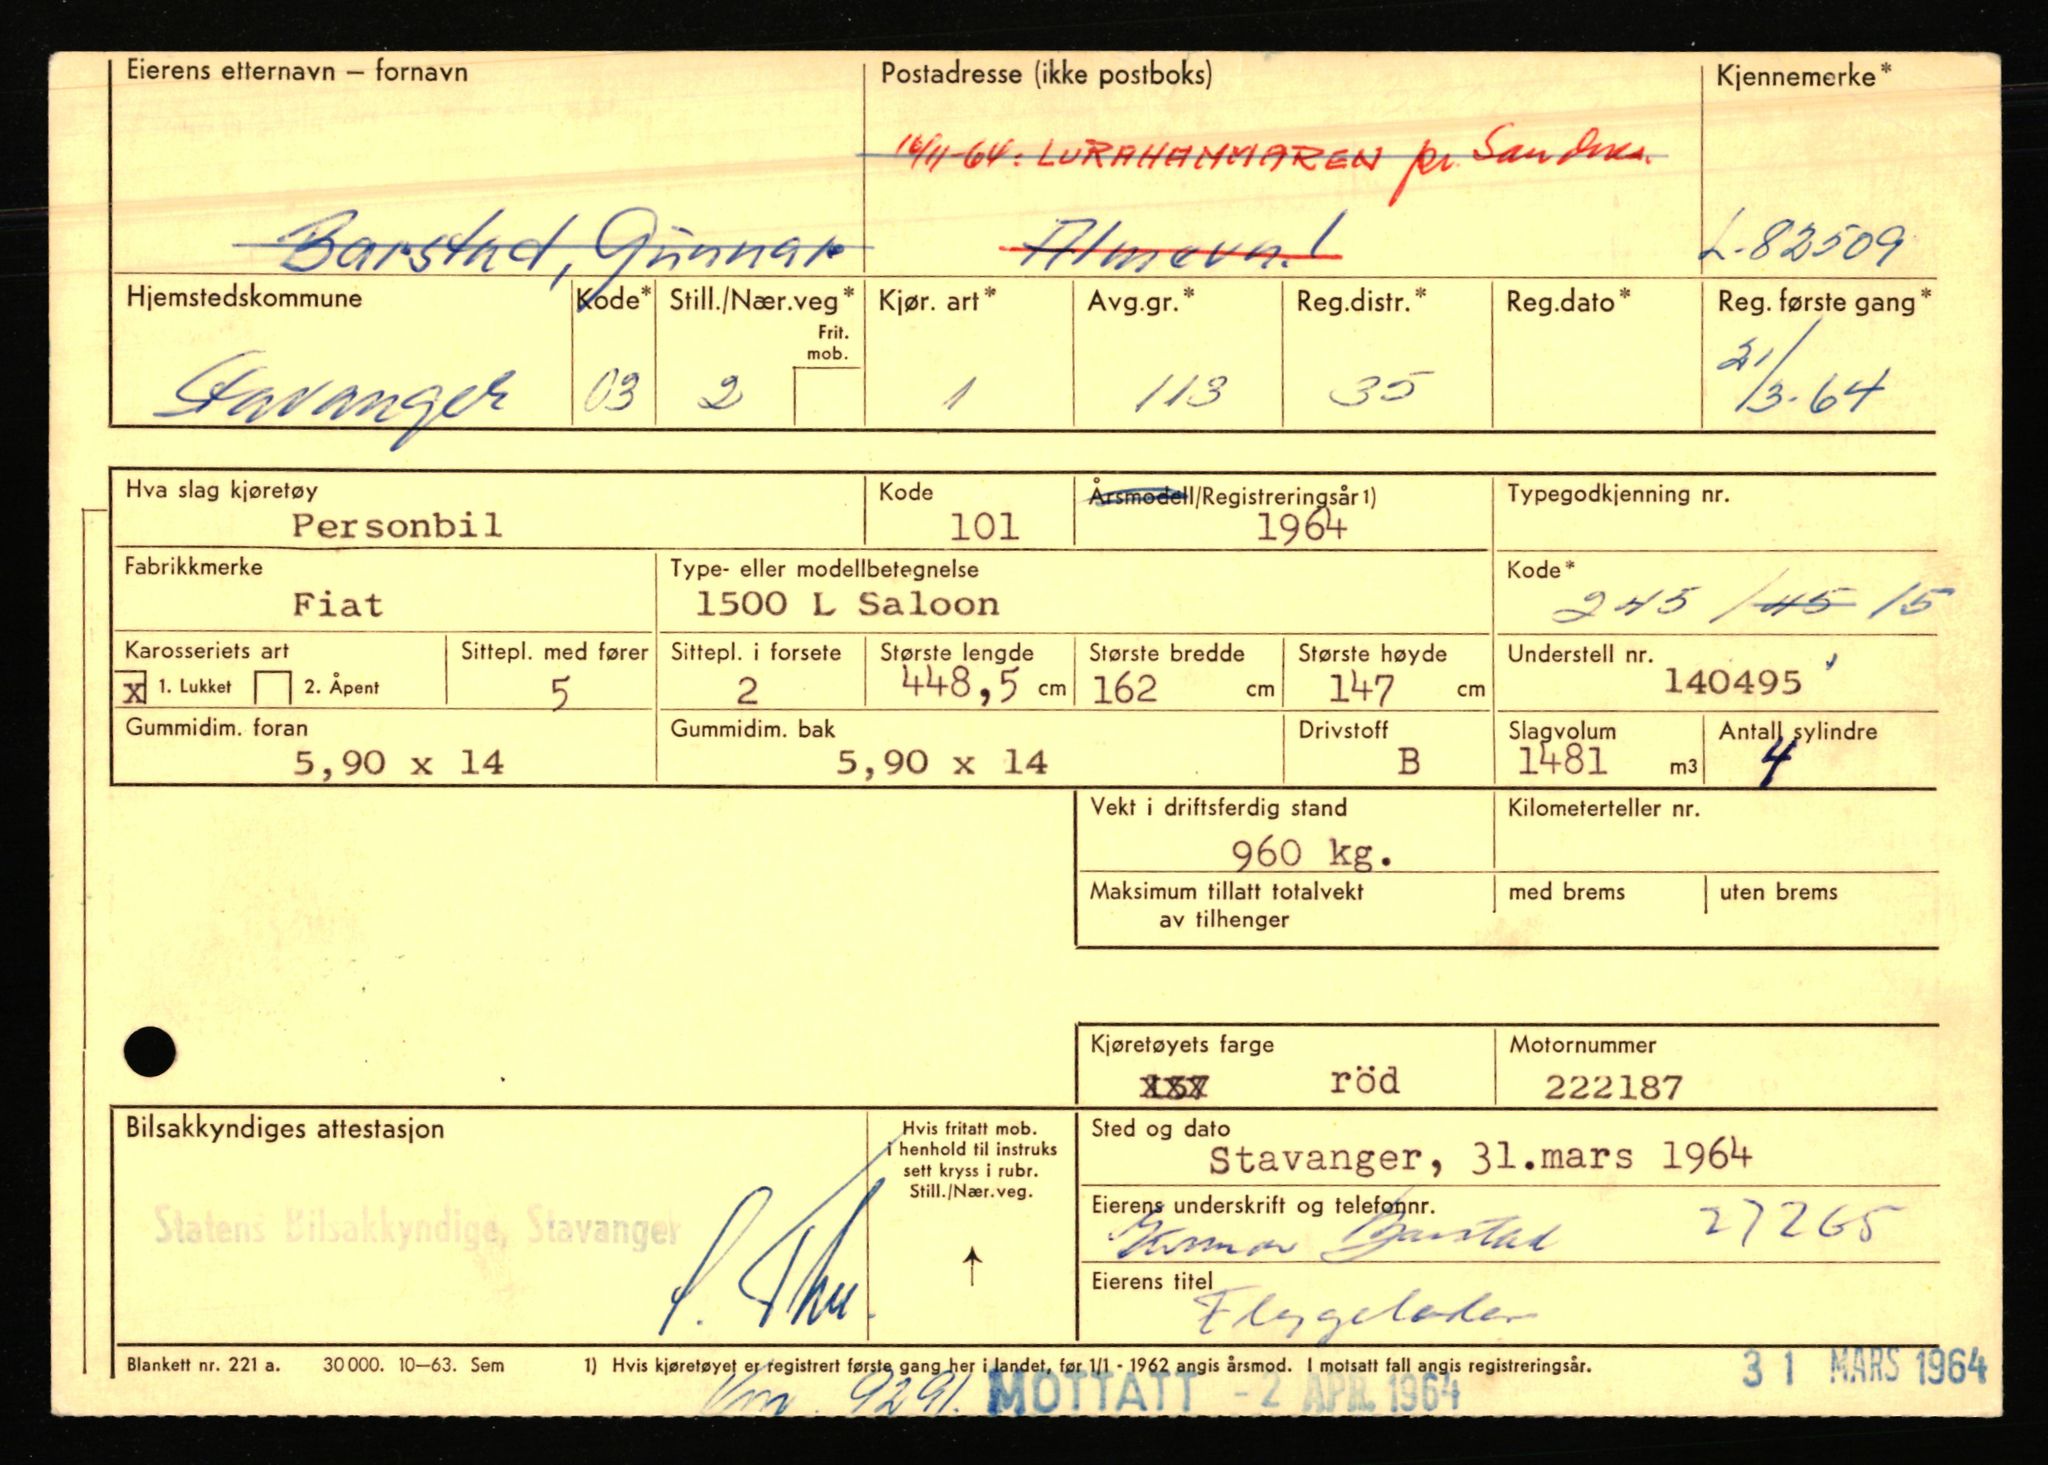 Eierens etternavn – fornavn
Postadresse (ikke postboks)
Kjennemerke*
16/11-64: LURAHAMMAREN pr. Sandnes.
Barstad, Gunnar
L-82509
Hjemstedskommune
Kode*
Still./Nær.veg*
Frit. mob.
Kjør. art*
Avg.gr.*
Reg.distr.*
Reg.dato*
Reg. første gang*
Stavanger
03
2
1
113
35
21/3-64
Hva slag kjøretøy
Kode
Årsmodell/Registreringsår 1)
Typegodkjenning nr.
Personbil
101
1964
Fabrikkmerke
Type- eller modellbetegnelse
Kode*
Fiat
1500 L Saloon
245 / 45 15
Karosseriets art
Sittepl. med fører
Sittepl. i forsete
Største lengde
Største bredde
Største høyde
Understell nr.
x 1. Lukket
2. Åpent
5
2
448,5 cm
162 cm
147 cm
140495
Gummidim. foran
Gummidim. bak
Drivstoff
Slagvolum
Antall sylindre
5,90 x 14
5,90 x 14
B
1481 m3
4
Vekt i driftsferdig stand
Kilometerteller nr.
960 kg.
Maksimum tillatt totalvekt
av tilhenger
med brems
uten brems
Kjøretøyets farge
Motornummer
röd
222187
Bilsakkyndiges attestasjon
Hvis fritatt mob.
i henhold til instruks
sett kryss i rubr.
Still./Nær.veg.
Sted og dato
Stavanger, 31.mars 1964
Statens Bilsakkyndige, Stavanger
Eierens underskrift og telefonnr.
Gunnar Barstad 27265
Eierens titel
Flygeleder
Blankett nr. 221 a. 30 000. 10–63. Sem
1) Hvis kjøretøyet er registrert første gang her i landet, før 1/1 - 1962 angis årsmod. I motsatt fall angis registreringsår.
31 MARS 1964
9291.
MOTTATT - 2 APR. 1964